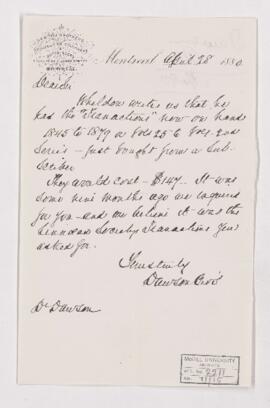 DAWSON BROTHERS
MONTREAL
Montreal April 28 1880
Dear Sir
Wheldon writes us that he
has the "Transactions" now on hand
1845 to 1879 or Vols 25 to Vol 1. 2nd
Series - just bought from a Sub-
scriber
They would cost - $147 -. It was
some nine months ago we enquired
for you - and we believe it was the
Linnean Society's Transactions you
asked for.
Yours truly
Dawson Bros
Dr Dawson
McGILL UNIVERSITY
ARCHIVES
ACC. NO. 2211
REF.